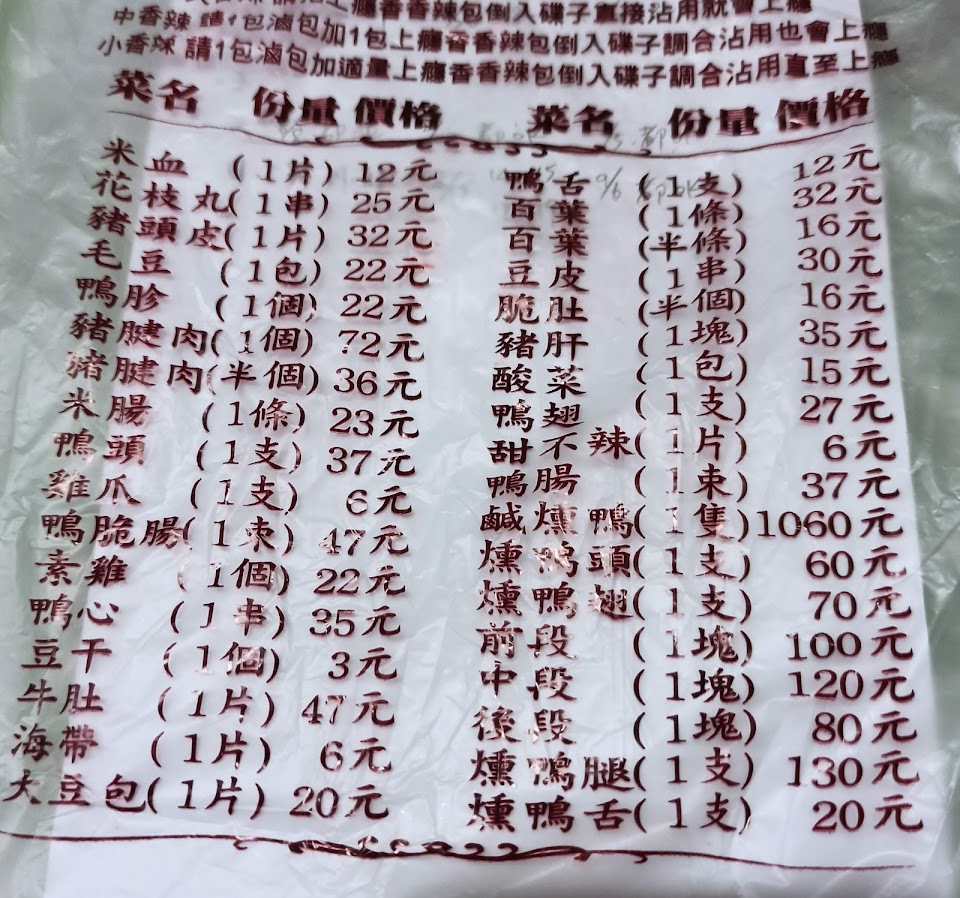 請1包滷包加上癮香香辣包倒入碟子直接沾用就會上癮
中香辣 請1包滷包加1包上癮香香辣包倒入碟子調合沾用也會上癮
小香辣 請1包滷包加適量上癮香香辣包倒入碟子調合沾用直至上癮
菜名 份量 價格 菜名 份量 價格
米血 (1片) 12元
花枝丸 (1串) 25元
豬頭皮 (1片) 32元
毛豆 (1包) 22元
鴨胗 (1個) 22元
豬腱肉 (1個) 72元
豬腱肉 (半個) 36元
米腸 (1條) 23元
鴨頭 (1支) 37元
雞爪 (1支) 6元
鴨脆腸 (1束) 47元
素雞 (1個) 22元
鴨心 (1串) 35元
豆干 (1個) 3元
牛肚 (1片) 47元
海帶 (1片) 6元
大豆包 (1片) 20元
鴨舌 (1支) 12元
百葉 (1條) 32元
百葉 (半條) 16元
豆皮 (1串) 30元
脆肚 (半個) 16元
豬肝 (1塊) 35元
酸菜 (1包) 15元
鴨翅 (1支) 27元
甜不辣 (1片) 6元
鴨腸 (1束) 37元
鹹燻鴨 (1隻) 1060元
燻鴨頭 (1支) 60元
燻鴨翅 (1支) 70元
前段 (1塊) 100元
中段 (1塊) 120元
後段 (1塊) 80元
燻鴨腿 (1支) 130元
燻鴨舌 (1支) 20元